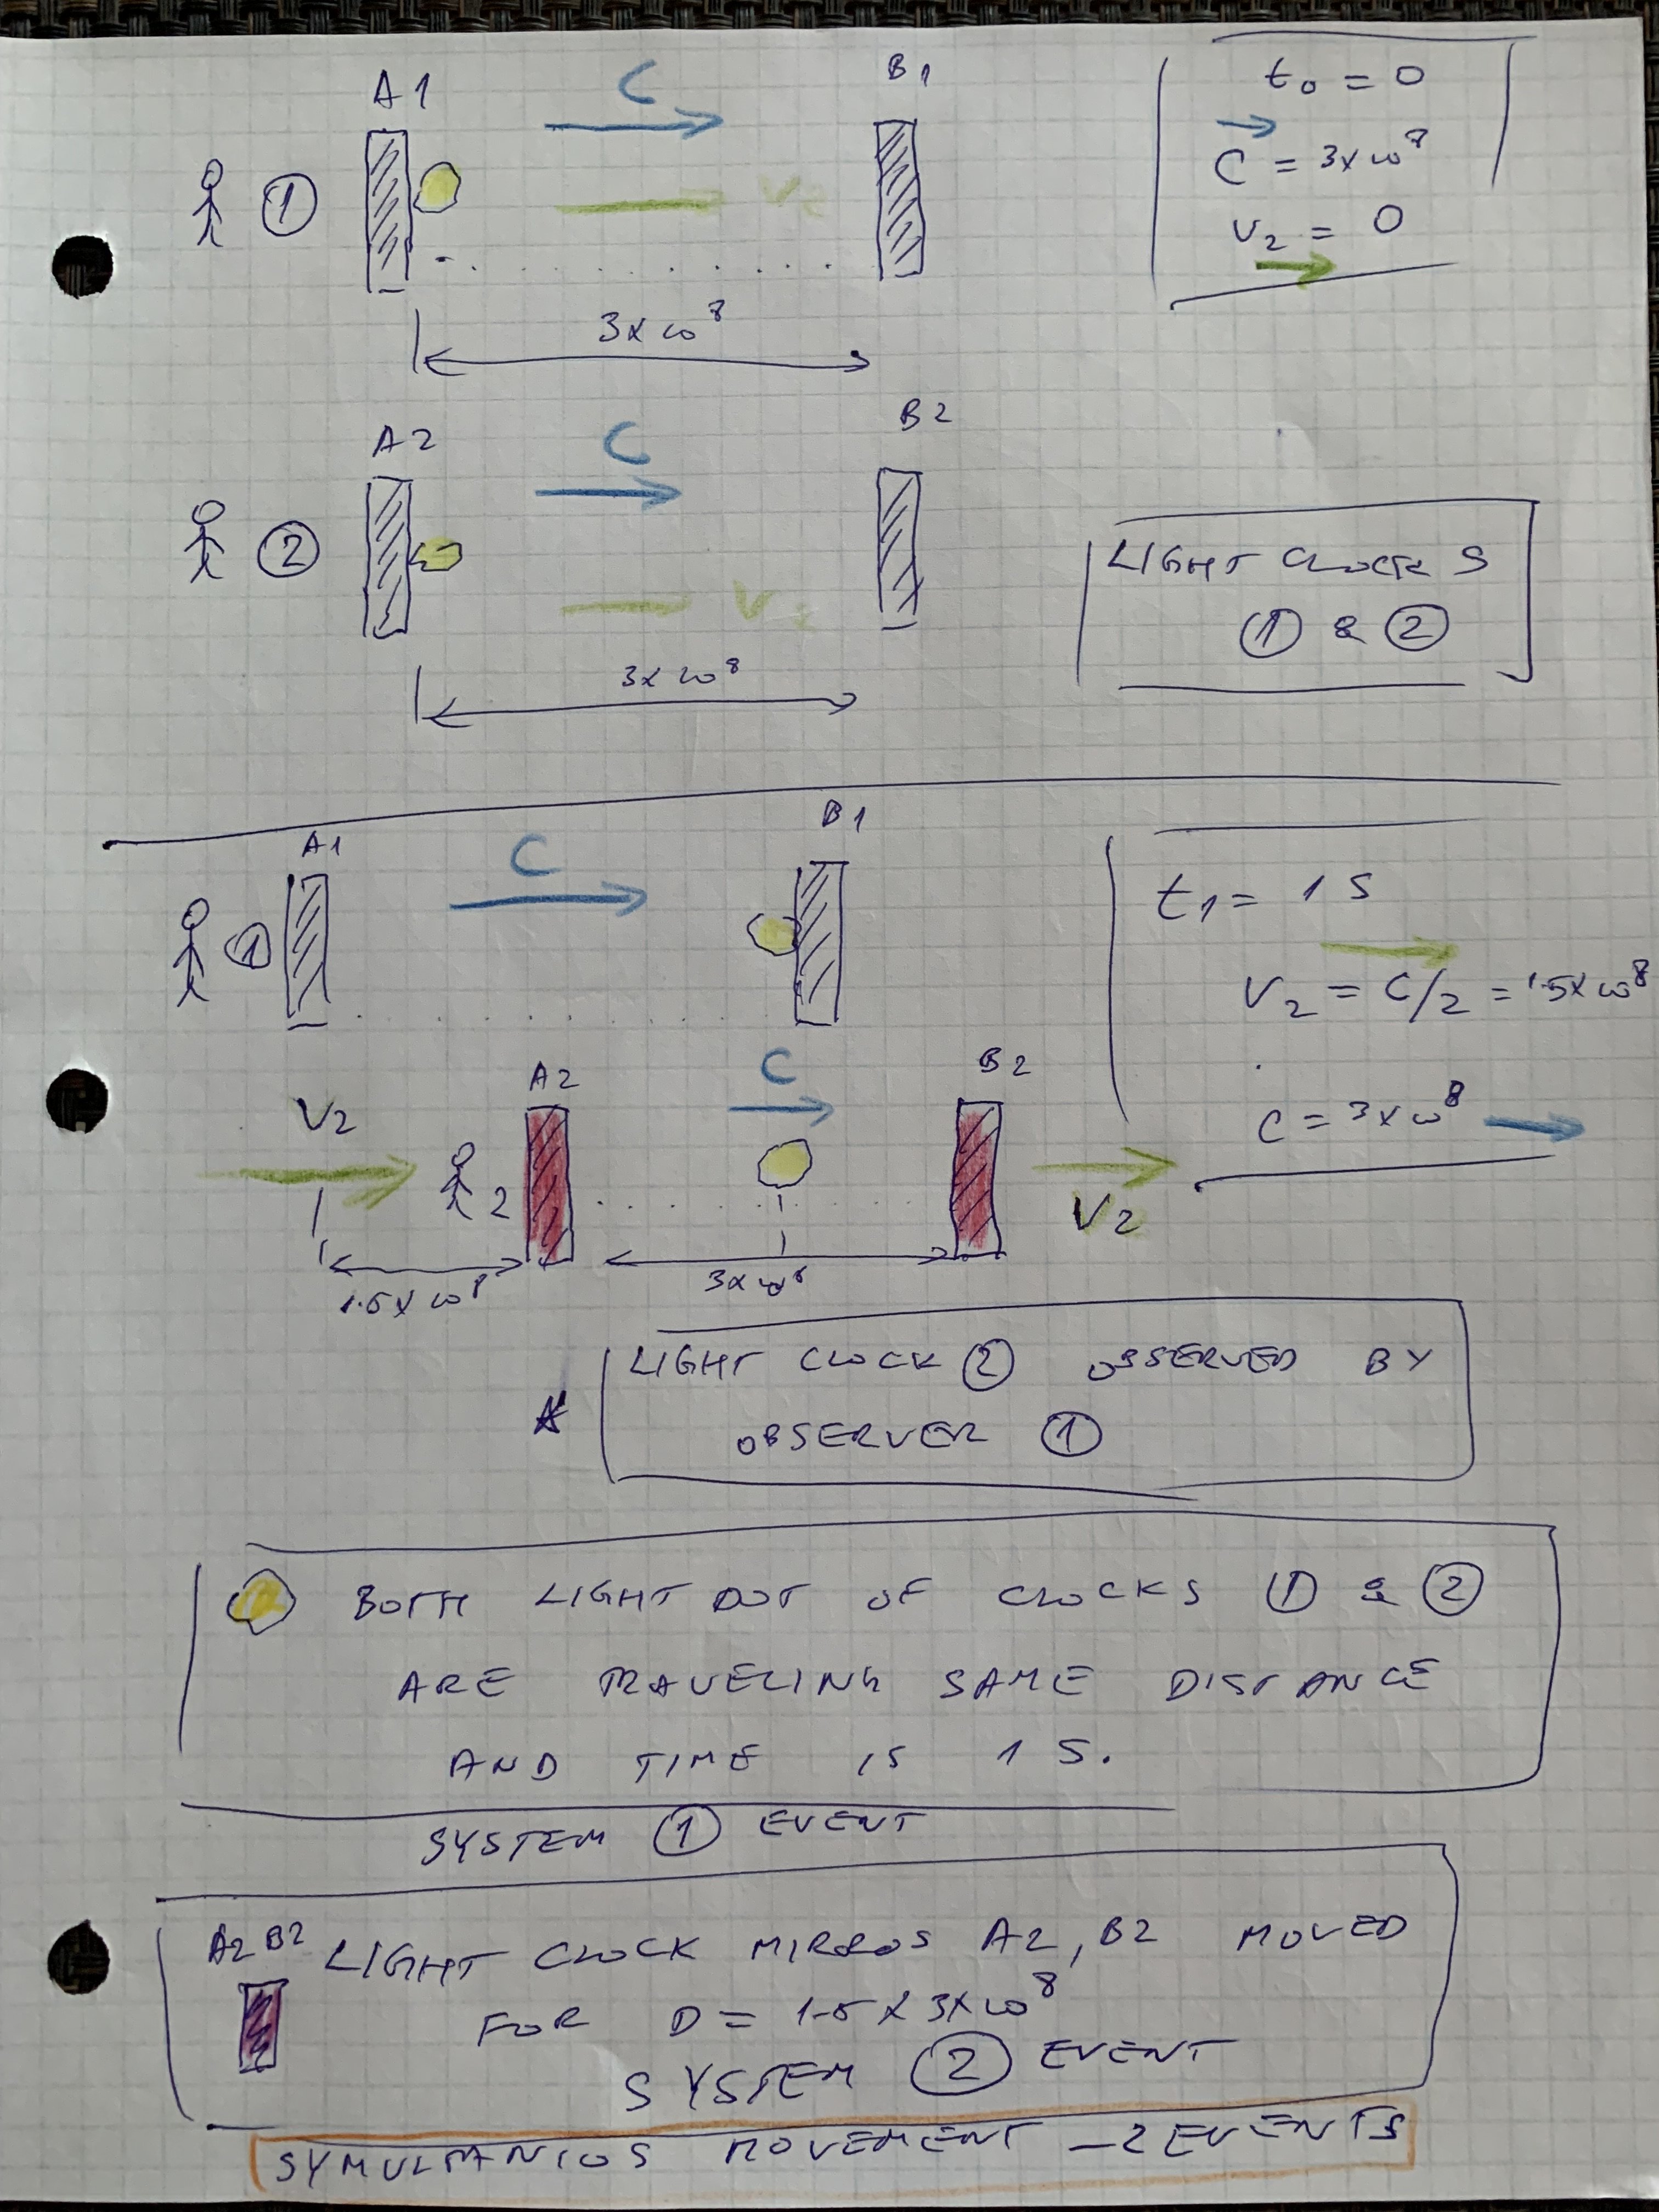 A1
C
B1
t₀ = 0
C = 3x10⁸
V₂ = 0
1
V₂
3x10⁸
A2
C
B2
2
V₂
LIGHT CLOCKS
1 & 2
3x10⁸
A1
C
B1
t₁ = 1 S
1
V₂ = C/2 = 1.5x10⁸
C = 3x10⁸
A2
C
B2
V2
2
V2
1.5x10⁸
3x10⁸
LIGHT CLOCK 2 OBSERVED BY
OBSERVER 1
BOTH LIGHT DOT OF CLOCKS 1 & 2
ARE TRAVELING SAME DISTANCE
AND TIME IS 1 S.
SYSTEM 1 EVENT
A2 B2 LIGHT CLOCK MIRROS A2, B2 MOVED
FOR D = 1.5 x 3x10⁸
SYSTEM 2 EVENT
SYMULTANIOS MOVEMENT - 2 EVENTS